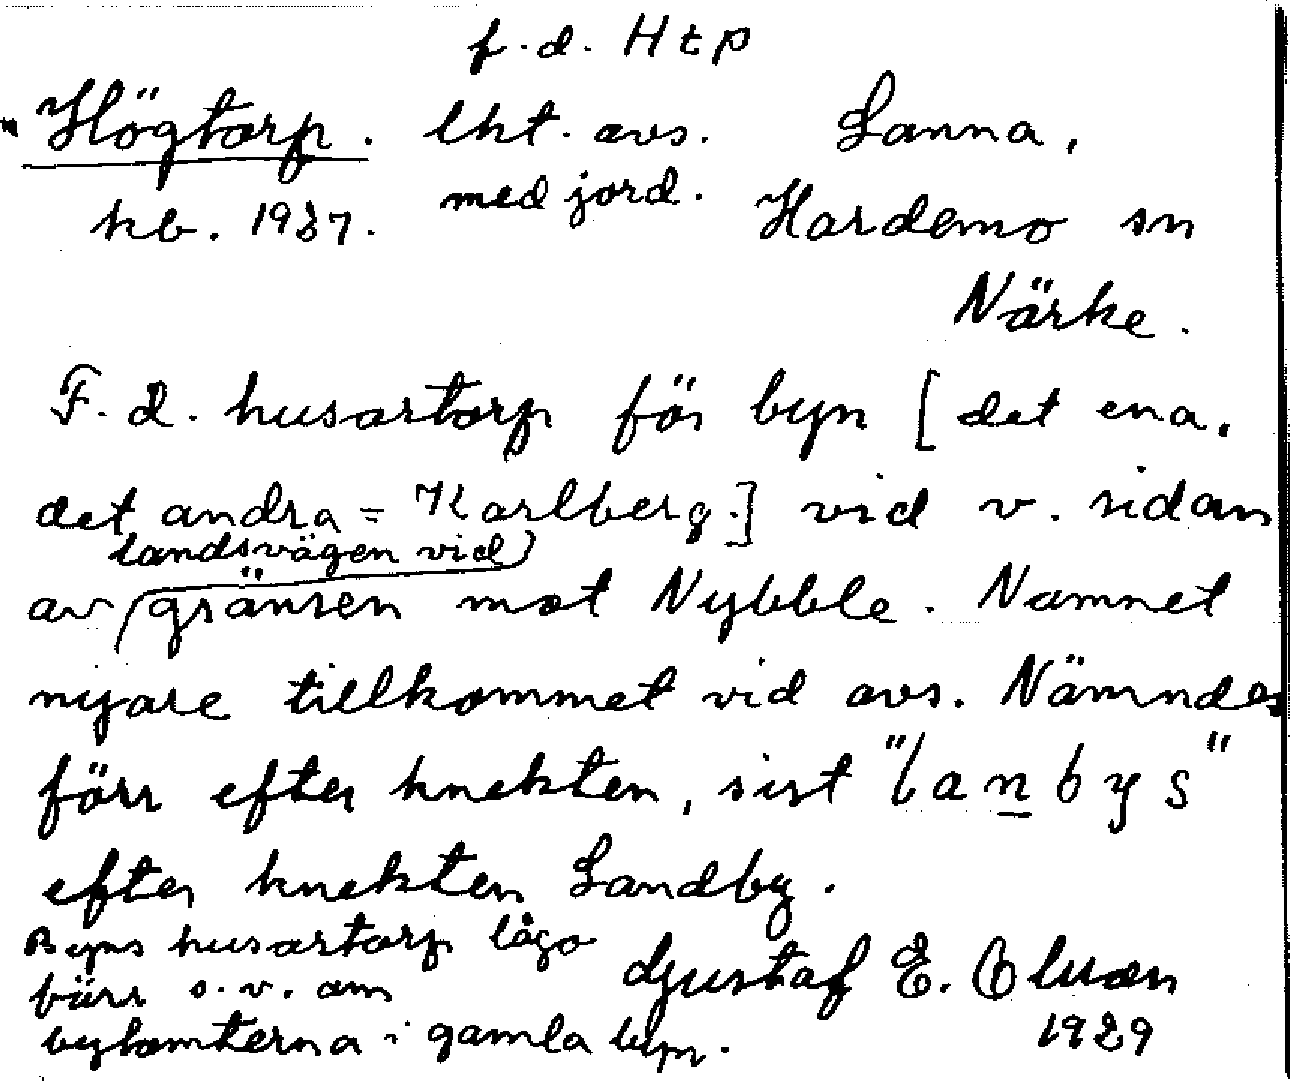 f.d. Htp
Högtorp. lht. avs. Lanna,
kb. 1937. med jord. Hardemo sn
Närke.
F.d. husartorp för byn [det ena,
det andra = Karlberg.] vid v. sidan
landsvägen vid
av gränsen mot Nybble. Namnet
nyare tillkommet vid avs. Nämndes
förr efter knekten, sist "lanbys"
efter knekten Landby.
Byns husartorp lågo
förr s.v. om
bytomterna i gamla byn.
Gustaf E. Olsson
1929